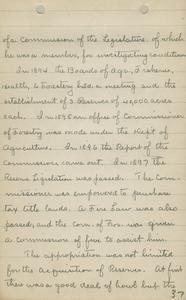 of a Commission of the Legislature, of which
he was a member, for investigating condition
In 1894 the Boards of Agr., Fisheries,
Health, & Forestry held a meeting and the
establishment of 3 Reserves of 40,000 acres
each. In 1895 an office of Commissioner
of Forestry was made under the Dept of
Agriculture. In 1896 the Report of the
Commissioner came out. In 1897 the
Reserve Legislation was passed. The Com-
missioner was empowered to purchase
tax title lands. A Fire Law was also
passed, and the Com. of For. was given
a Commission of five to assist him.
The appropriation was not limited
for the Acquisition of Reserves. At first
there was a good deal of howl but the
37